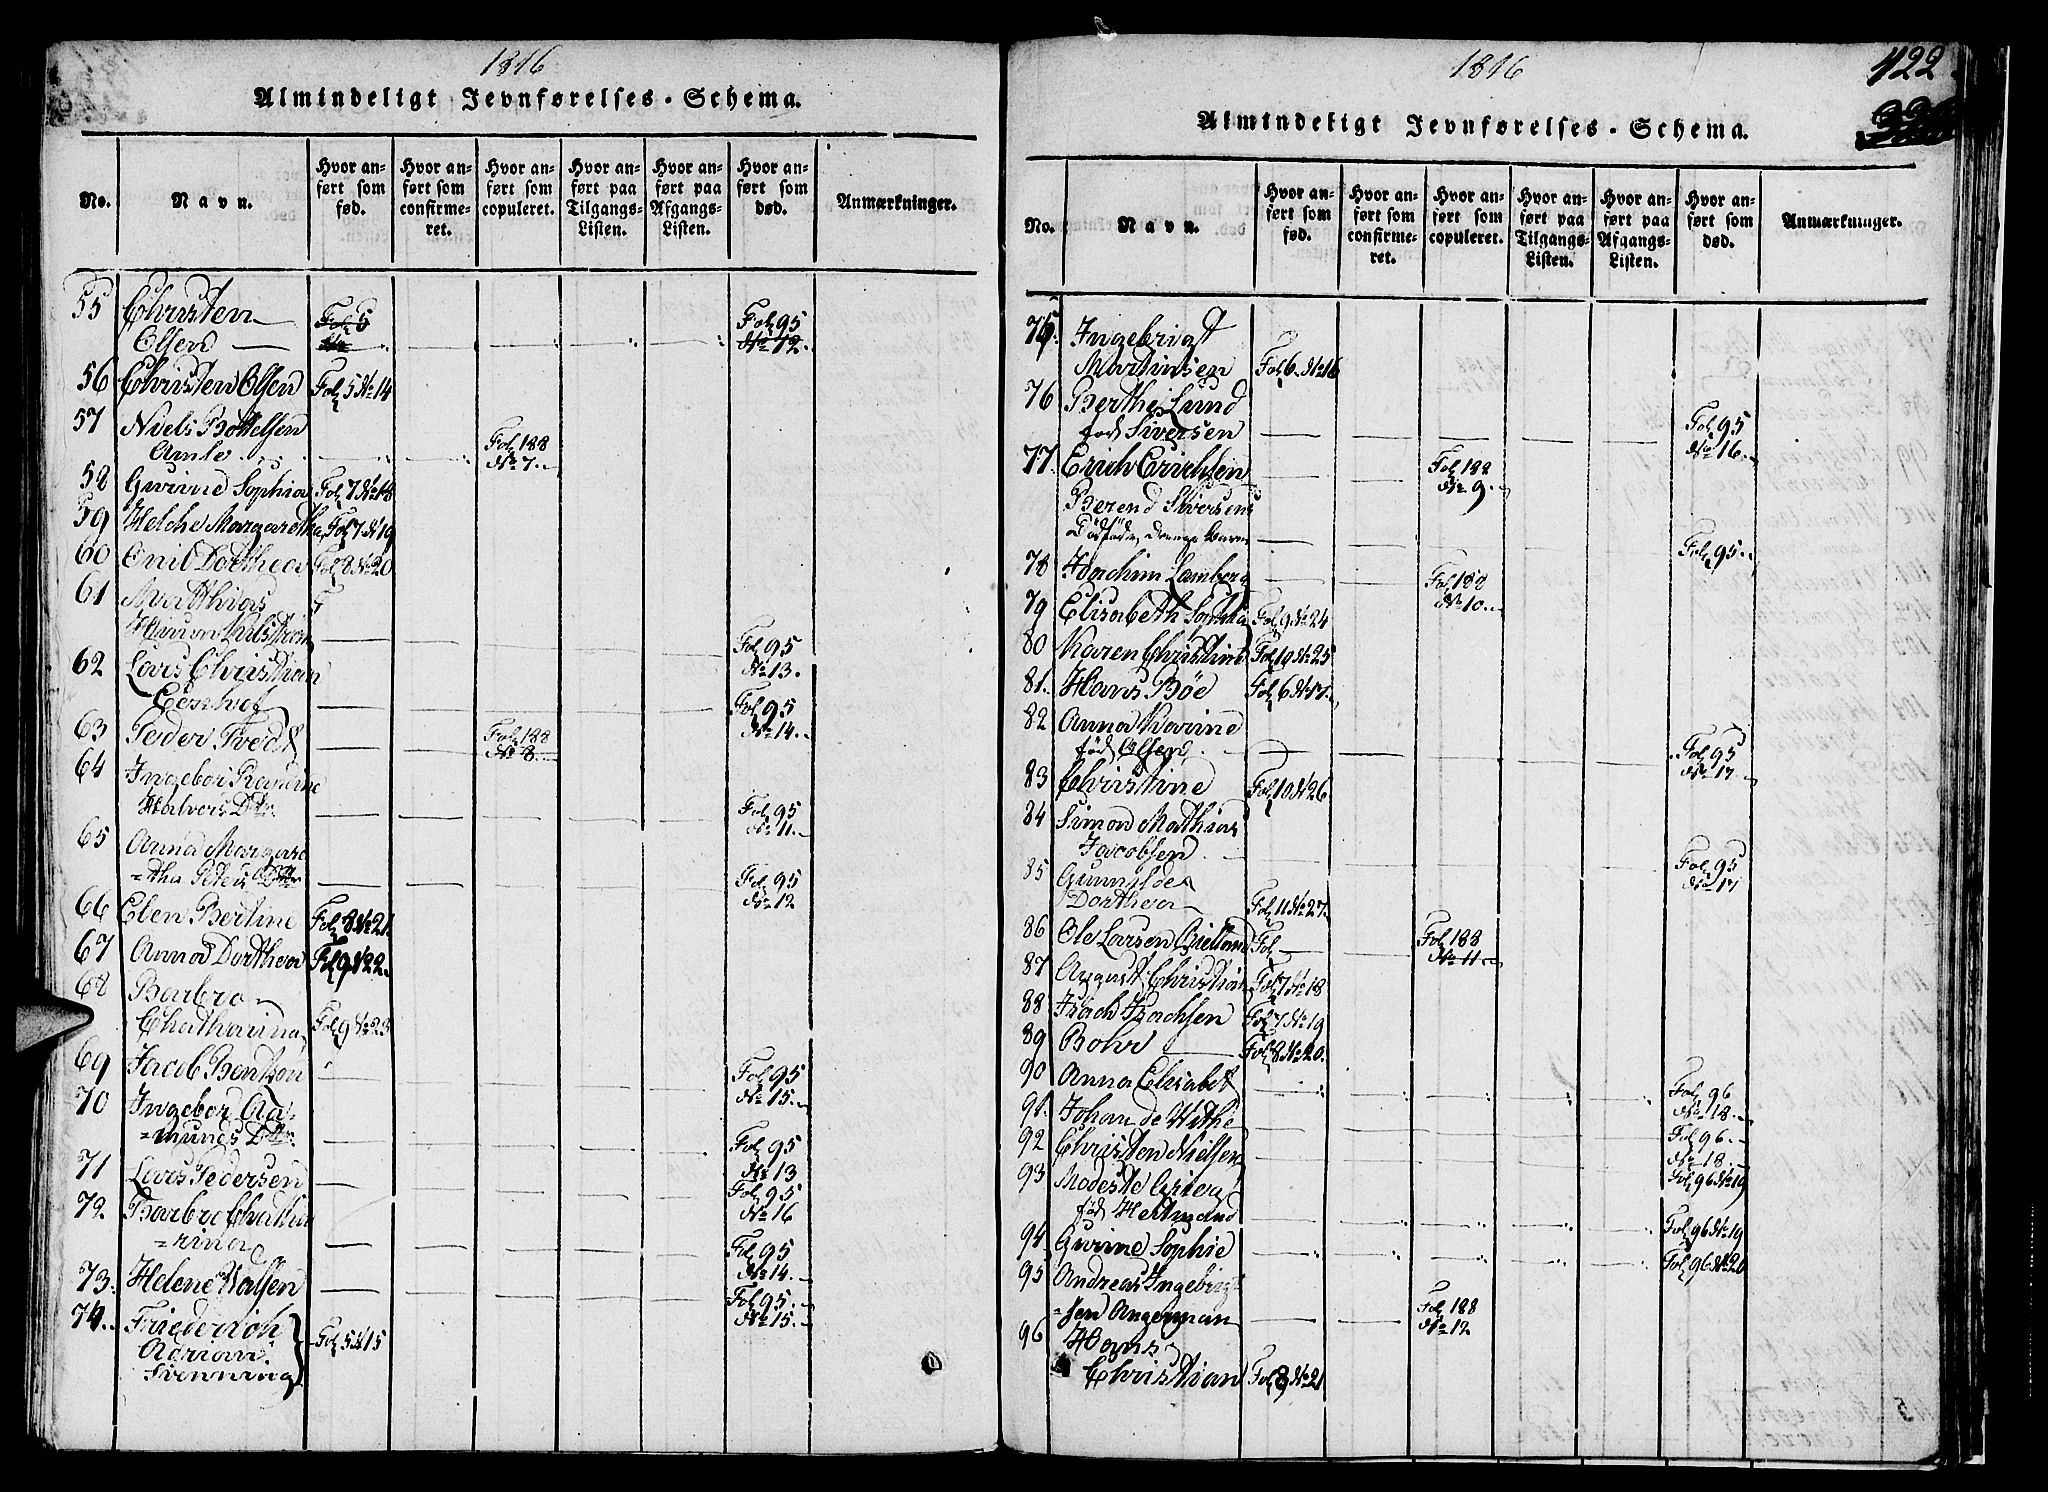 1816
Almindeligt Jevnførelses-Schema.
No.
Navn.
Hvor anført som fød.
Hvor anført som confirmeret.
Hvor anført som copuleret.
Hvor anført paa Tilgangs-Listen.
Hvor anført paa Afgangs-Listen.
Hvor anført som død.
Anmærkninger.
55 Christen
Olsen — Fol 5 Fol 95 No 12.
56 Christen Olsen Fol 5 No 14
57 Niels Bottelsen
Amle Fol 188 No 7.
58 Gurine Sophia Fol 7 No 18
59 Helche Margaretha Fol 7 No 19
60 Emil Dorthea Fol 8 No 20
61 Matthias
Fol 95 No 13.
62 Lars Christian
Fol 95 No 14.
63 Peder Tvedt Fol 188 No 8.
64 Ingebor
Halvors Dtr. Fol 95 No 11.
65 Anna Margare
=tha Peters Dtr Fol 95 No 12
66 Elen Bertine Fol 8 No 21.
67 Anna Dorthea Fol 9 No 22.
68 Barbro
Chatharina Fol 9 No 23
69 Jacob Bentsen Fol 95 No 15.
70 Ingebor Aa-
=munds Dtr. Fol 95 No 13
71 Lars Pedersen Fol 95 No 16
72. Barbro Chatha
=rina Fol 95 No 14.
73. Helene Olsen Fol 95. No 15.
74. Friederich
Adrian
Svenning Fol 5 No 15
1816
422
Almindeligt Jevnførelses-Schema.
No.
Navn.
Hvor anført som fød.
Hvor anført som confirmeret.
Hvor anført som copuleret.
Hvor anført paa Tilgangs-Listen.
Hvor anført paa Afgangs-Listen.
Hvor anført som død.
Anmærkninger.
75 Ingebrigt
Martinsen Fol 6 No 16
76 Berthe Lund
fød Siversen Fol 95 No 16.
77. Erich Erichsen Fol 188 No 9.
Berend Siversens
Fol 95.
78 Joachim Lamberg Fol 188 No 10.
79 Elisabeth Sophia Fol 9 No 24
80 Karen Christine Fol 10 No 25
81. Hans Bøe Fol 6 No 17.
82 Anna Karine
fød Olsen Fol 95 No 17
83 Christine Fol 10 No 26
84 Simon Mathias
Jacobsen Fol 95 No 17
85 Gunnilde
Dorthea Fol 11 No 27.
86 Ole Larsen Gielland Fol Fol 188 No 11.
87 August Christian Fol 7 No 18
88 Isach Isachsen Fol 7 No 19
89 Bohr Fol 8 No 20.
90 Anna Elisabet Fol 96 No 18.
91. Johan de Withe Fol 96. No 18.
92 Christen Nielsen Fol 96 No 19
93 Modeste Grieg
fød Heltmand Fol 96 No 19
94. Gurine Sophie Fol 96 No 20
95 Andreas Ingebrigt-
=sen Angerman Fol 188 No 12
96 Hans
Christian Fol 8 No 21